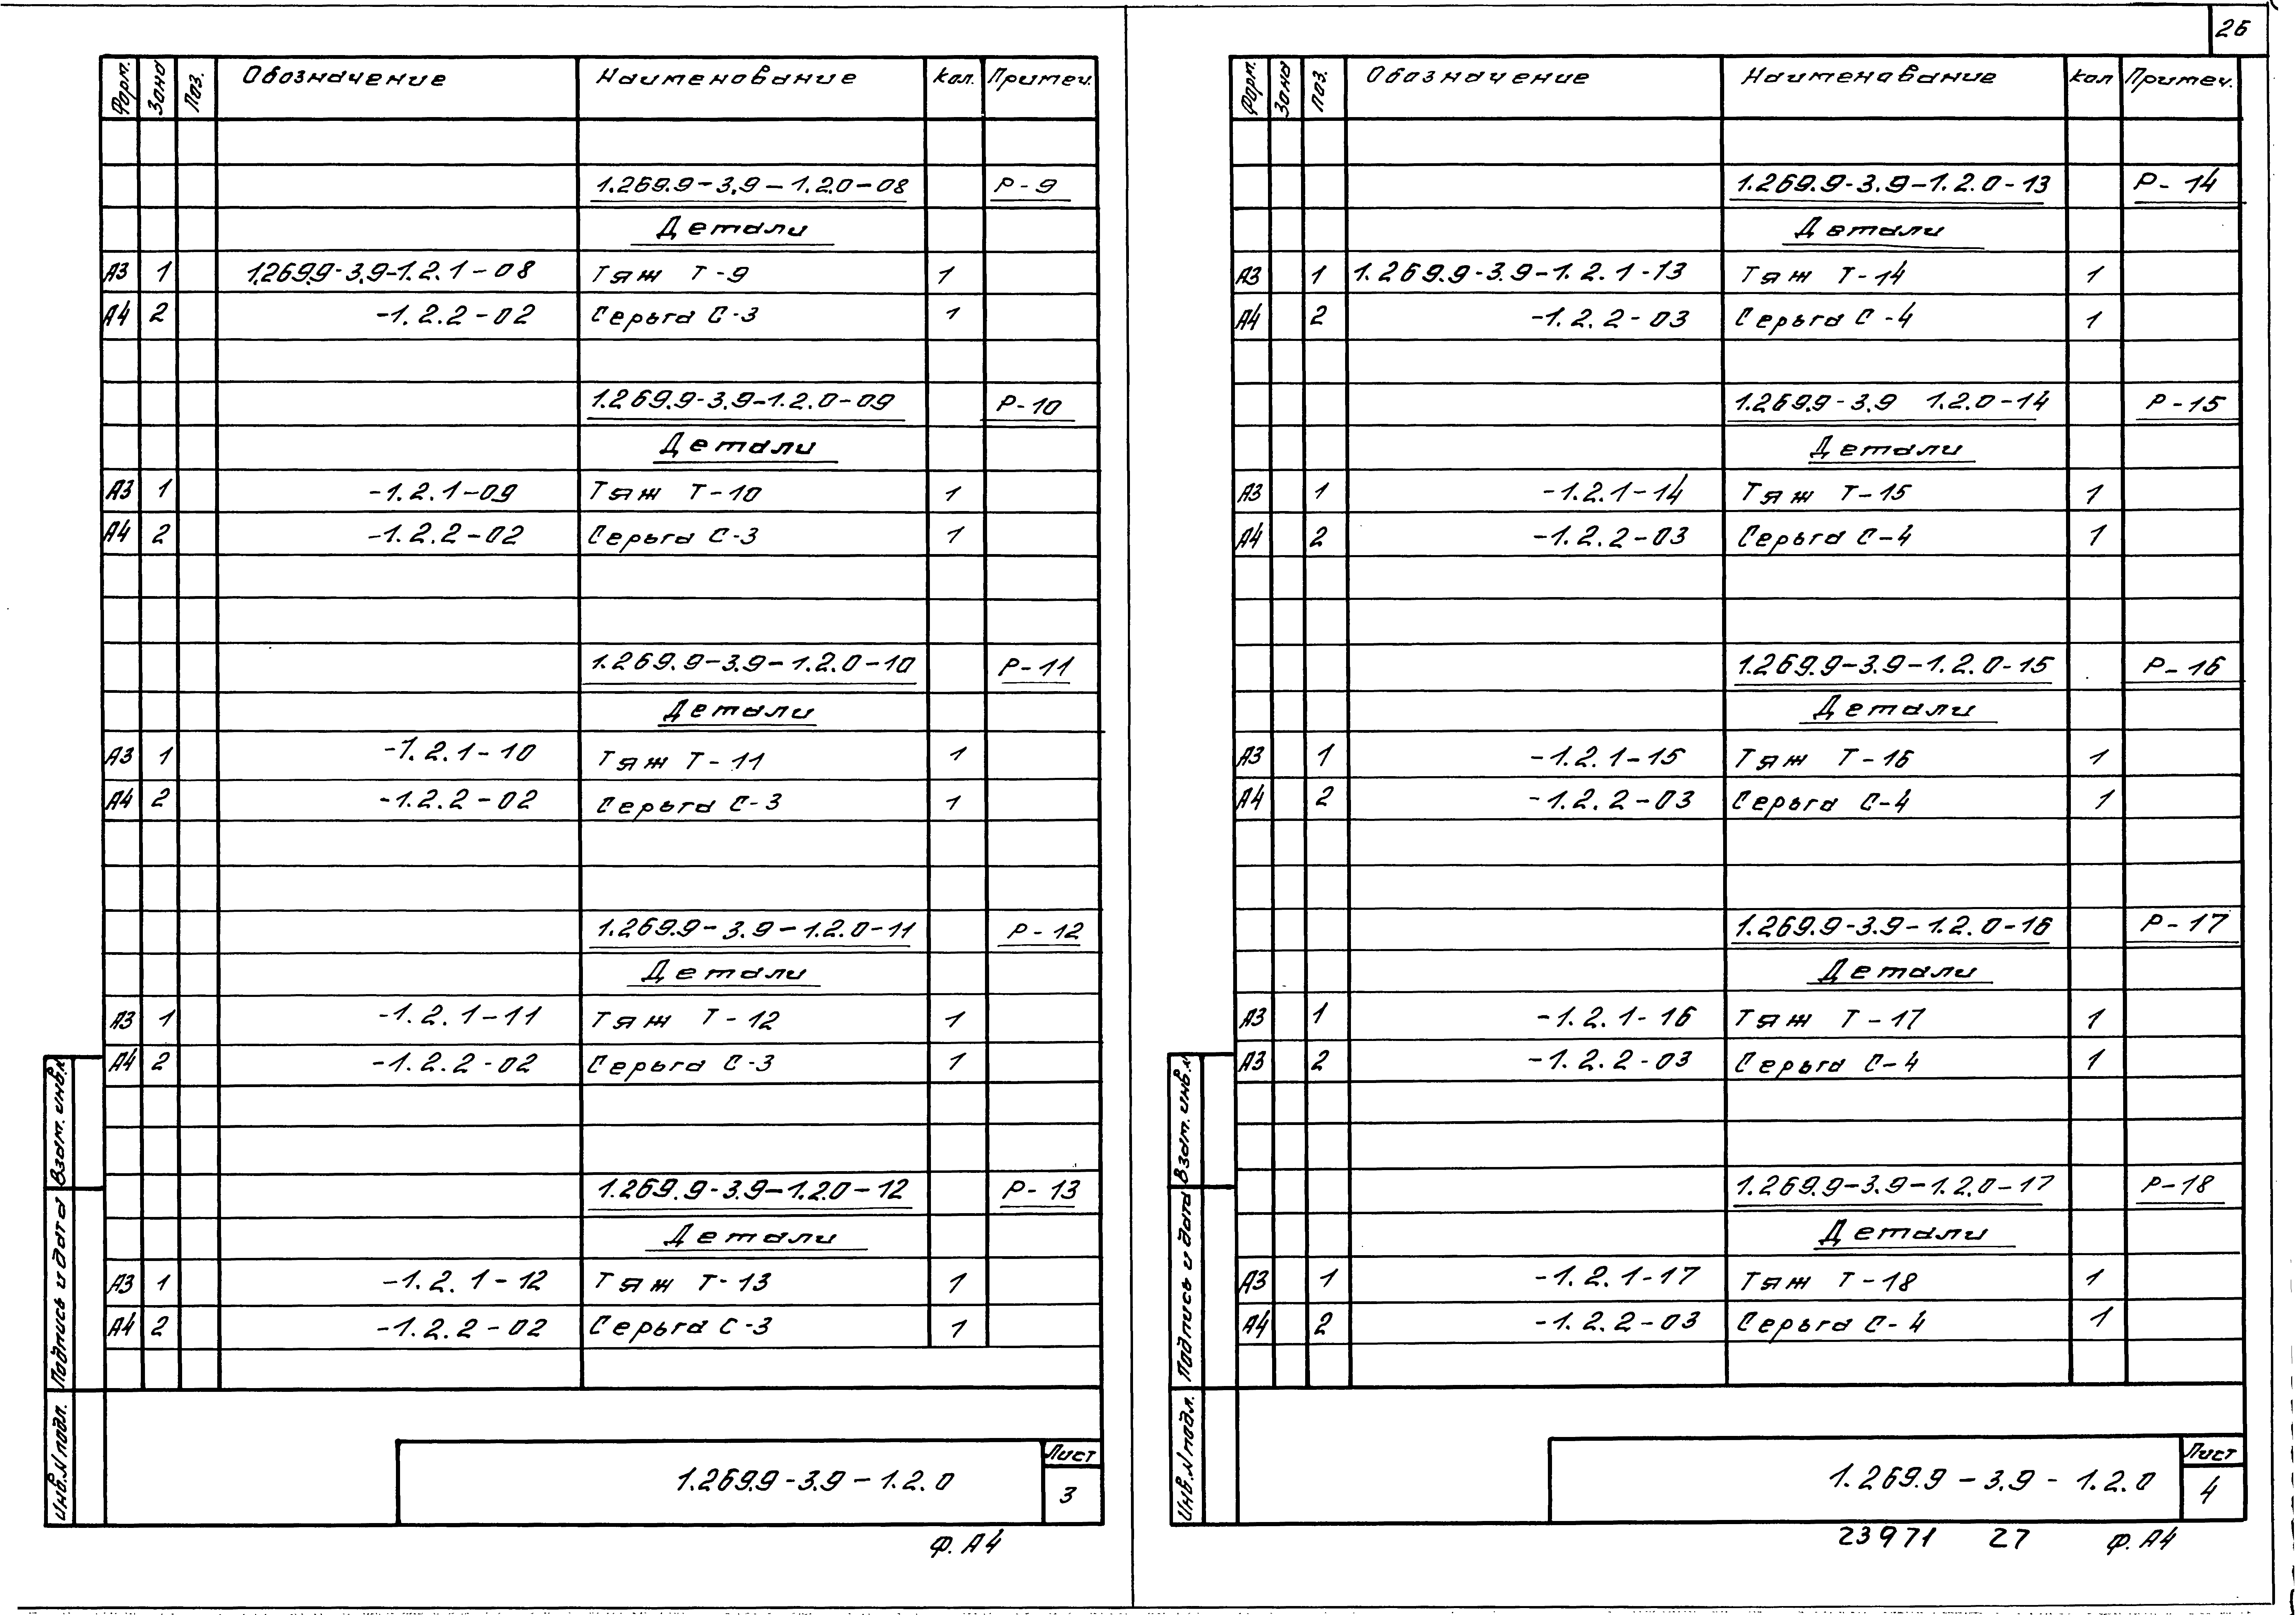 26
Форм. Зона Поз. Обозначение Наименование Кол. Примеч.
1.269.9-3.9-1.2.0-08 Р-9
Детали
А3 1 1.269.9-3.9-1.2.1-08 Тяж Т-9 1
А4 2 -1.2.2-02 Серьга С-3 1
1.269.9-3.9-1.2.0-09 Р-10
Детали
А3 1 -1.2.1-09 Тяж Т-10 1
А4 2 -1.2.2-02 Серьга С-3 1
1.269.9-3.9-1.2.0-10 Р-11
Детали
А3 1 -1.2.1-10 Тяж Т-11 1
А4 2 -1.2.2-02 Серьга С-3 1
1.269.9-3.9-1.2.0-11 Р-12
Детали
А3 1 -1.2.1-11 Тяж Т-12 1
А4 2 -1.2.2-02 Серьга С-3 1
1.269.9-3.9-1.2.0-12 Р-13
Детали
А3 1 -1.2.1-12 Тяж Т-13 1
А4 2 -1.2.2-02 Серьга С-3 1
Инв.N подл. Подпись и дата Взам. инв.N
1.269.9-3.9-1.2.0
Лист
3
Ф. А4
Форм. Зона Поз. Обозначение Наименование Кол Примеч.
1.269.9-3.9-1.2.0-13 Р-14
Детали
А3 1 1.269.9-3.9-1.2.1-13 Тяж Т-14 1
А4 2 -1.2.2-03 Серьга С-4 1
1.269.9-3.9 1.2.0-14 Р-15
Детали
А3 1 -1.2.1-14 Тяж Т-15 1
А4 2 -1.2.2-03 Серьга С-4 1
1.269.9-3.9-1.2.0-15 Р-16
Детали
А3 1 -1.2.1-15 Тяж Т-16 1
А4 2 -1.2.2-03 Серьга С-4 1
1.269.9-3.9-1.2.0-16 Р-17
Детали
А3 1 -1.2.1-16 Тяж Т-17 1
А3 2 -1.2.2-03 Серьга С-4 1
1.269.9-3.9-1.2.0-17 Р-18
Детали
А3 1 -1.2.1-17 Тяж Т-18 1
А4 2 -1.2.2-03 Серьга С-4 1
Инв.N подл. Подпись и дата Взам. инв.N
1.269.9-3.9-1.2.0
Лист
4
23971 27 Ф. А4